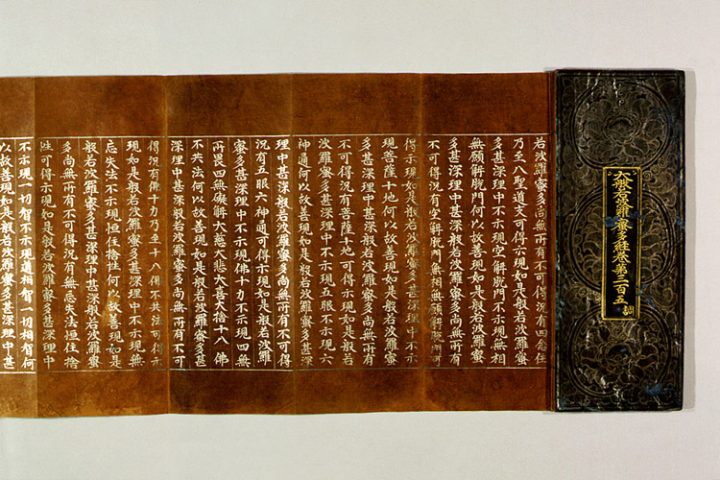 大般若波羅蜜多經卷第三百五
若波羅蜜多尚無所有不可得況有四念住
乃至八聖道支可得示現如是般若波羅蜜
多甚深理中不示現空解脫門不示現無相
無願解脫門何以故善現如是般若波羅蜜
多甚深理中甚深般若波羅蜜多尚無所有
不可得況有空解脫門無相無願解脫門可
得示現如是般若波羅蜜多甚深理中不示
現菩薩十地何以故善現如是般若波羅蜜
多甚深理中甚深般若波羅蜜多尚無所有
不可得況有菩薩十地可得示現如是般若
波羅蜜多甚深理中不示現五眼不示現六
神通何以故善現如是般若波羅蜜多甚深
理中甚深般若波羅蜜多尚無所有不可得
況有五眼六神通可得示現如是般若波羅
蜜多甚深理中不示現佛十力不示現四無
所畏四無礙解大慈大悲大喜大捨十八佛
不共法何以故善現如是般若波羅蜜多甚
深理中甚深般若波羅蜜多尚無所有不可
得況有佛十力乃至十八佛不共法可得示
現如是般若波羅蜜多甚深理中不示現無
忘失法不示現恒住捨性何以故善現如是
般若波羅蜜多甚深理中甚深般若波羅蜜
多尚無所有不可得況有無忘失法恒住捨
性可得示現如是般若波羅蜜多甚深理中
不示現一切智不示現道相智一切相智何
以故善現如是般若波羅蜜多甚深理中甚